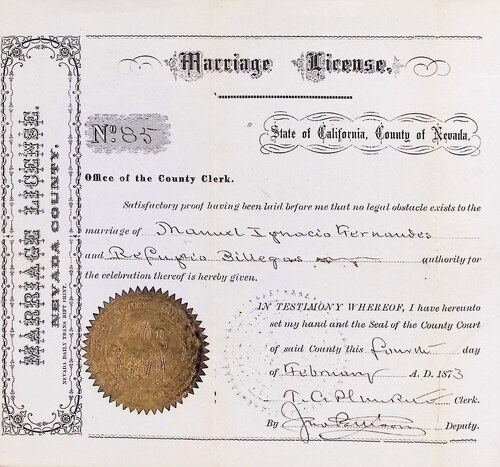 Marriage License.
MARRIAGE LICENSE.
NEVADA COUNTY.
NEVADA DAILY TRANS RIPT PRINT.
No. 85
State of California, County of Nevada.
Office of the County Clerk.
Satisfactory proof having been laid before me that no legal obstacle exists to the
marriage of Manuel Ignacio Fernandes
and Refugia Billegas authority for
the celebration thereof is hereby given.
IN TESTIMONY WHEREOF, I have hereunto
set my hand and the Seal of the County Court
of said County this fourth day
of February A. D. 1873
T. C. Plunkett Clerk.
By Deputy.